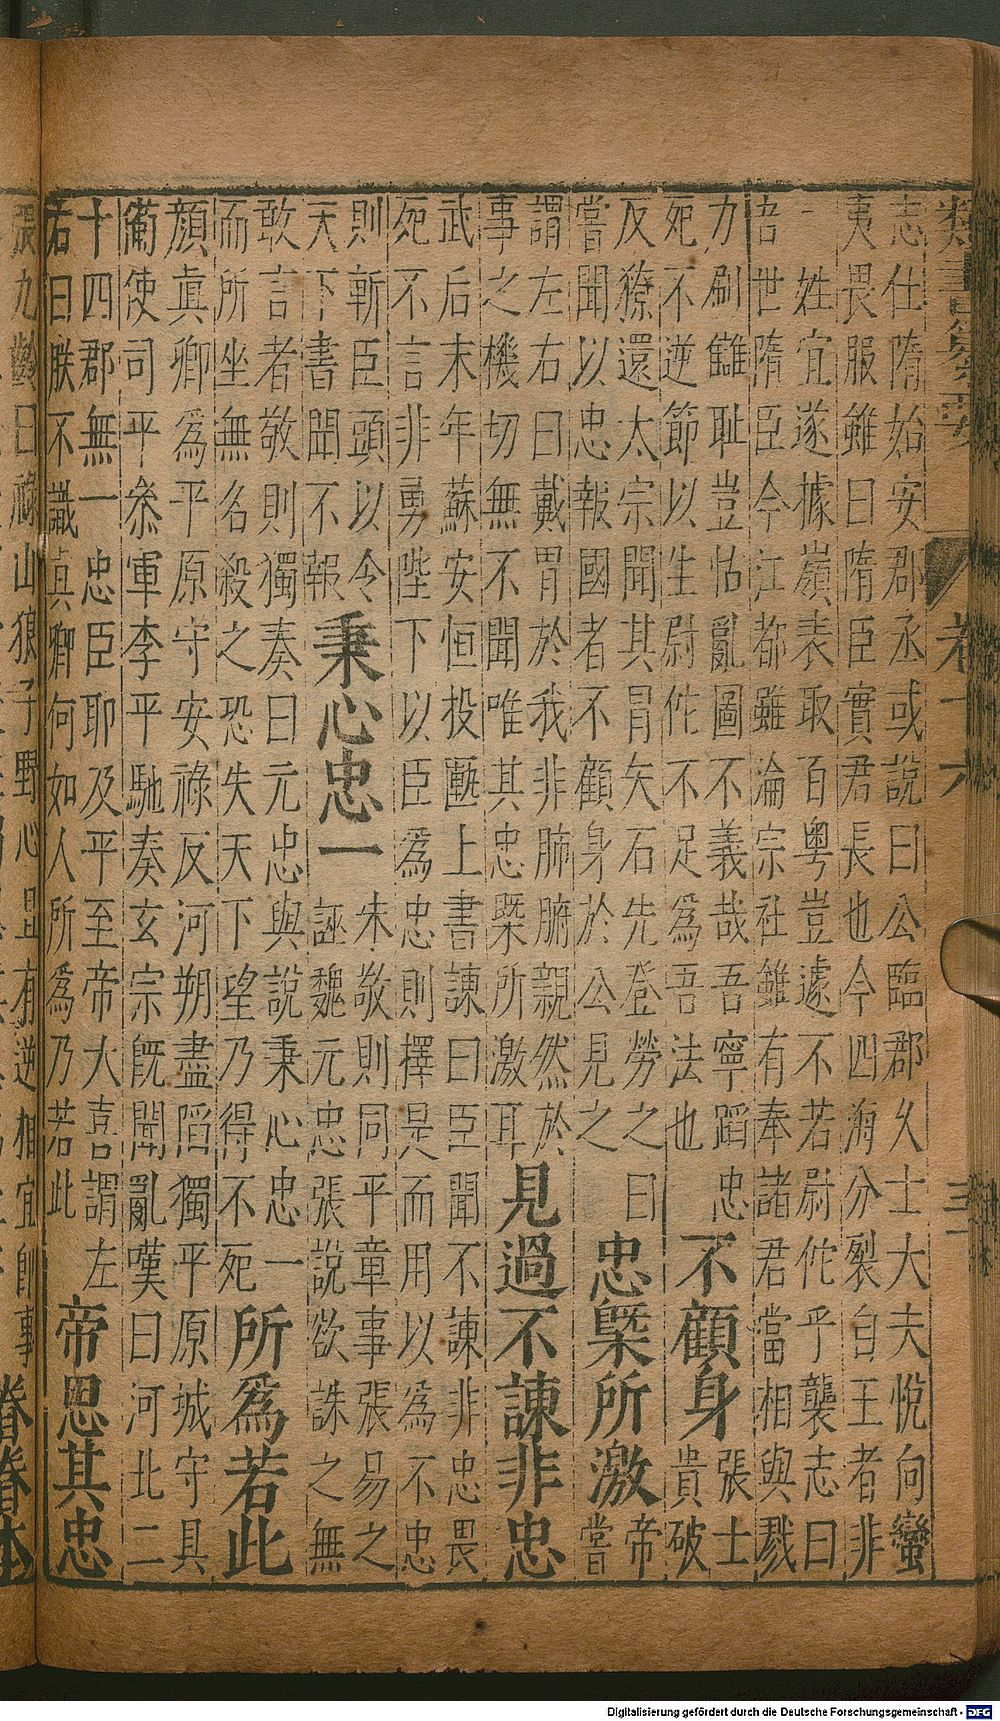 類書纂要 卷十六
志仕隋始安郡丞或說曰公臨郡久士大夫悅向蠻
夷畏服雖曰隋臣實君長也今四海分裂自王者非
一姓宜遂據嶺表取百粵豈遽不若尉佗乎襲志曰
吾世隋臣今江都雖淪宗社雖有奉諸君當相與戮
力刷讎耻豈怙亂圖不義哉吾寧蹈忠
死不逆節以生尉佗不足爲吾法也
不顧身
張士
貴破
反獠還太宗聞其冒矢石先登勞之曰
嘗聞以忠報國者不顧身於公見之
忠槩所激
帝
嘗
謂左右曰戴胄於我非肺腑親然於
事之機切無不聞唯其忠槩所激耳
見過不諫非忠
武后末年蘇安恒投匭上書諫曰臣聞不諫非忠畏
死不言非勇陛下以臣爲忠則擇是而用以爲不忠
則斬臣頭以令
天下書聞不報
秉心忠一
朱敬則同平章事張易之
誣魏元忠張說欲誅之無
敢言者敬則獨奏曰元忠與說秉心忠一
而所坐無名殺之恐失天下望乃得不死
所爲若此
顏眞卿爲平原守安祿反河朔盡陷獨平原城守具
備使司平叅軍李平馳奏玄宗旣聞亂嘆曰河北二
十四郡無一忠臣耶及平至帝大喜謂左
右曰朕不識眞卿何如人所爲乃若此
帝思其忠
張九齡曰祿山狼子野心且有逆相宜卽事
眷眷本
Digitalisierung gefördert durch die Deutsche Forschungsgemeinschaft - DFG